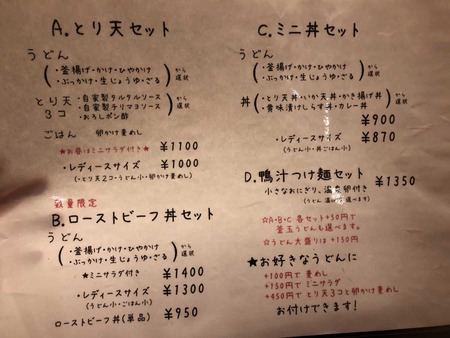 A.とり天セット
うどん
(・釜揚げ・かけ・ひやかけ
・ぶっかけ・生じょうゆ・ざる) から選択
とり天3コ (・自家製タルタルソース
・自家製チリマヨソース
・おろしポン酢) から選択
ごはん 卵かけ麦めし
★お昼はミニサラダ付き★ ¥1100
・レディースサイズ ¥1000
(・とり天2コ・うどん小・卵かけ麦めし)
数量限定
B.ローストビーフ丼セット
うどん
(・釜揚げ・かけ・ひやかけ
・ぶっかけ・生じょうゆ・ざる) から選択
★ミニサラダ付き ¥1400
・レディースサイズ ¥1300
(うどん小・ごはん小)
ローストビーフ丼(単品) ¥950
C.ミニ丼セット
うどん
(・釜揚げ・かけ・ひやかけ
・ぶっかけ・生じょうゆ・ざる) から選択
丼 (・とり天丼・いか天丼・かき揚げ丼
・黄味漬けしらす丼・カレー丼) から選択
¥900
・レディースサイズ ¥870
(うどん小・丼ごはん小)
D.鴨汁つけ麺セット ¥1350
小さなおにぎり、温泉卵付き
☆A・B・C 各セット+50円で
釜玉うどんも選べます。
☆うどん大盛りは +150円
★お好きなうどんに
+100円で 麦めし
+150円で ミニサラダ
+450円で とり天3コと卵かけ麦めし
お付けできます!